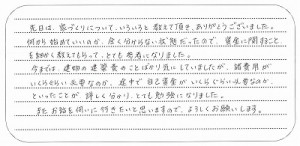 先日は、家づくりについて、いろいろと教えて頂き、ありがとうございました。
何から始めていいのか、全く分からない状態だったので、資金に関すること
を細かく教えてもらって、とても参考になりました。
今までは、建物の建築費のことばかり気にしていましたが、諸費用が
いくらぐらい必要なのか、途中で自己資金がいくらぐらい必要なのか、
といったことが、詳しく分かり、とても勉強になりました。
また、お話を伺いに行きたいと思いますので、よろしくお願いします。